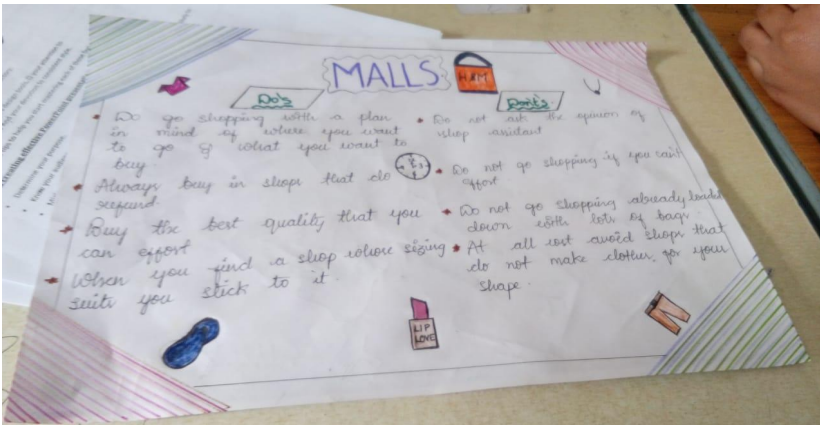 MALLS
H&M
Do's
Dont's
Do go shopping with a plan
in mind of where you want
to go & what you want to
buy.
Always buy in shops that do
refund.
Buy the best quality that you
can effort
When you find a shop whose sizing
suits you stick to it.
Do not ask the opinion of
shop assistant
Do not go shopping if you can't
effort
Do not go shopping already loaded
down with lots of bags.
At all cost avoid shops that
do not make clothes, for your
shape.
LIP
LOVE
creating effective PowerPoint
Determine your purpose.